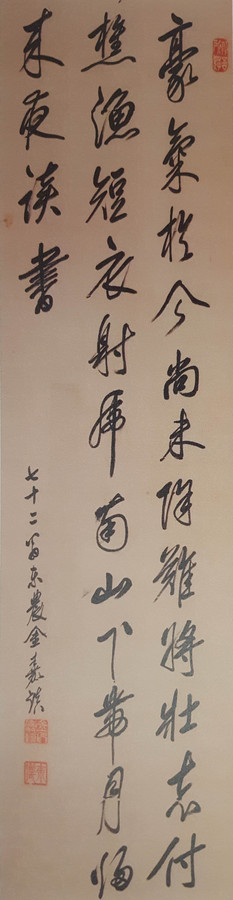 豪氣於今尚未除難將壯志付
樵漁短衣射虎南山下帶月歸
来夜讀書
七十二翁東農金嘉琰